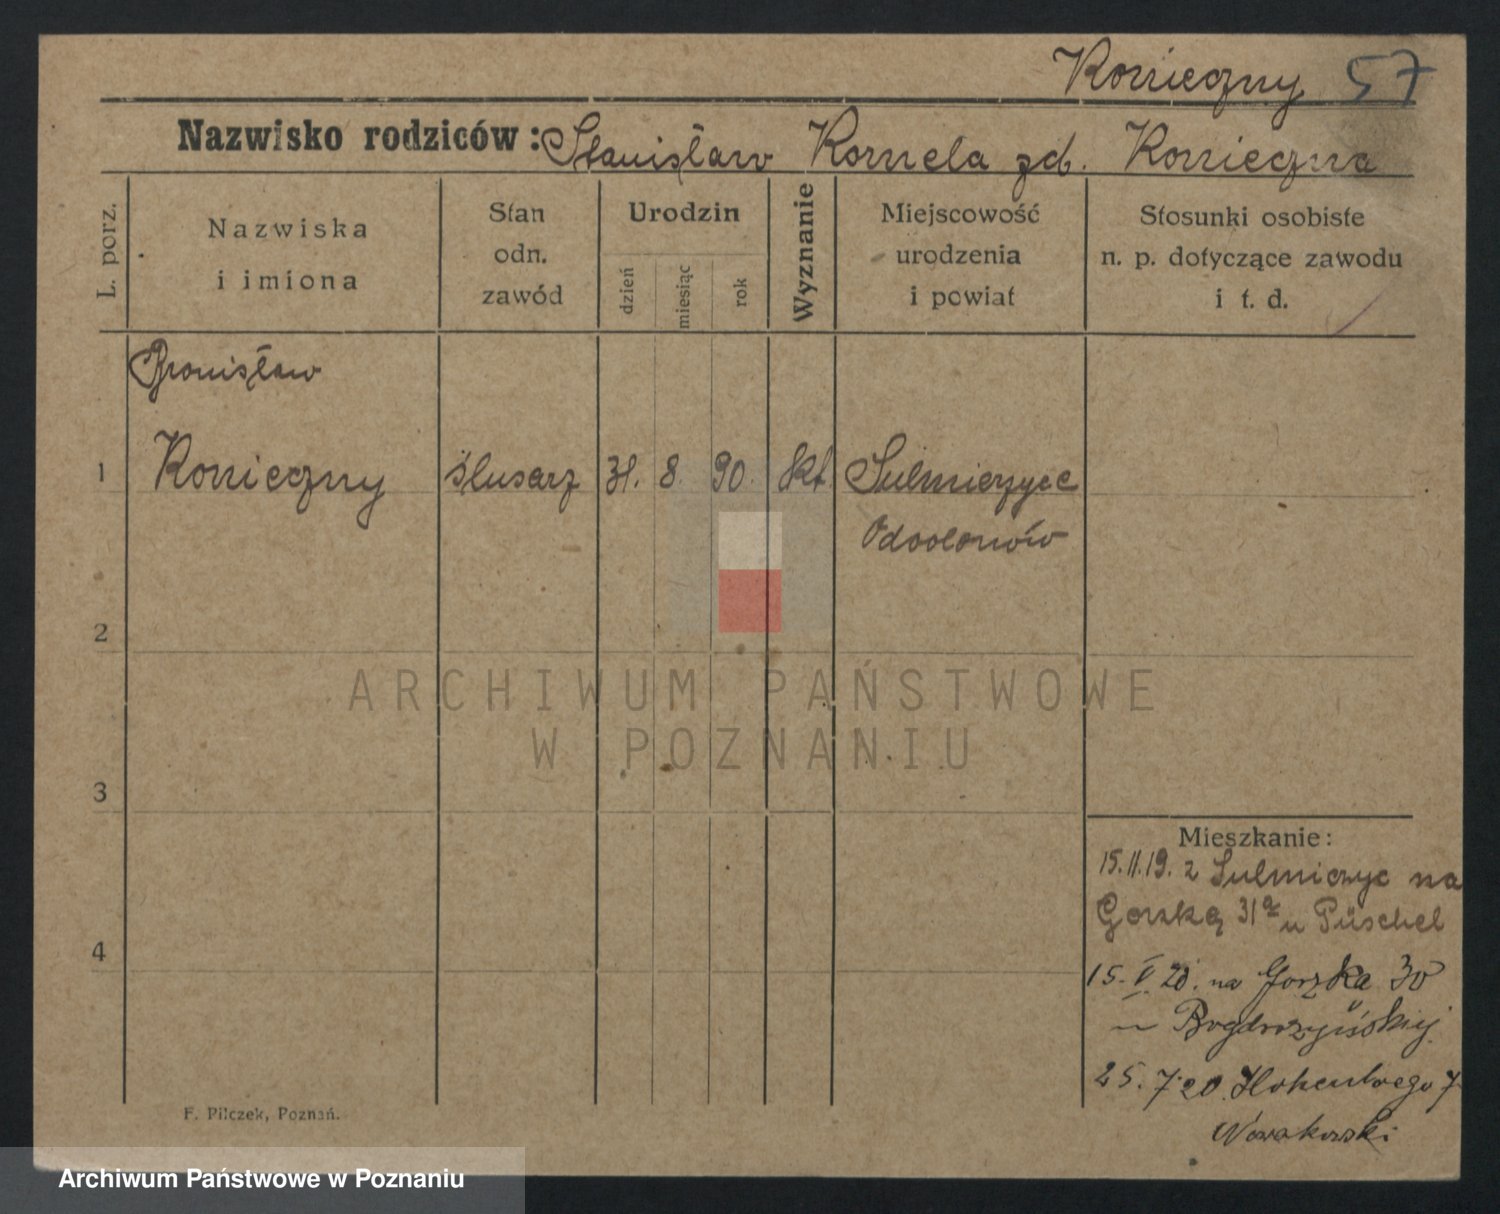 Konieczny 57
Nazwisko rodziców: Stanisław Kornela zd. Konieczna
L. porz.
Nazwiska
i imiona
Stan
odn.
zawód
Urodzin
dzień
miesiąc
rok
Wyznanie
Miejscowość
urodzenia
i powiat
Stosunki osobiste
n. p. dotyczące zawodu
i t. d.
Bronisław
1 Konieczny ślusarz 31. 8. 90. kt. Sulmierzyce
Odolanów
2
ARCHIWUM PAŃSTWOWE
W POZNANIU
3
Mieszkanie:
15.11.19. z Sulmierzyc na
Gorzką 31a u Püschel
4
15. V. 20. na Gorzka 30
u
25. 7. 20. 7
Nowakowski
F. Pilczek, Poznań.
Archiwum Państwowe w Poznaniu